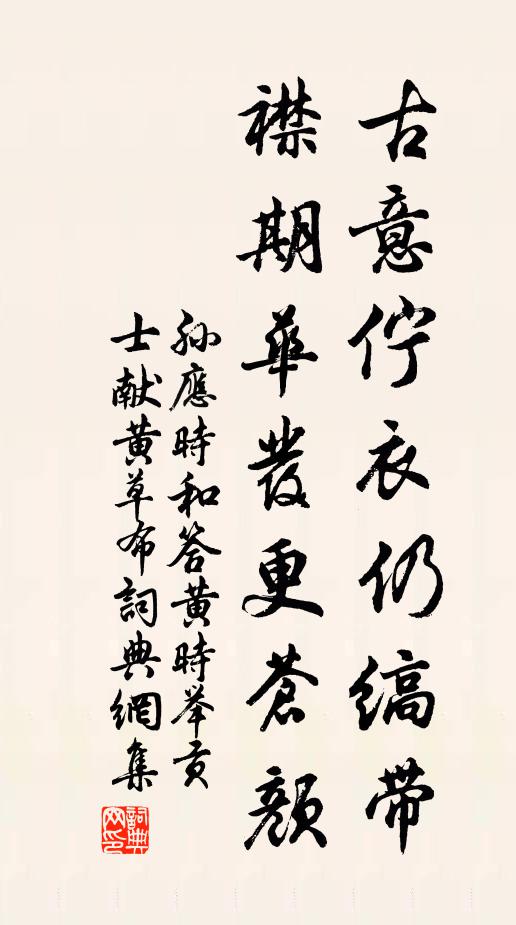 古意佇衣仍縞帶
襟期華發更蒼顏
孫應時和答黃時举貢
士献黃草布詞典網集
詞典